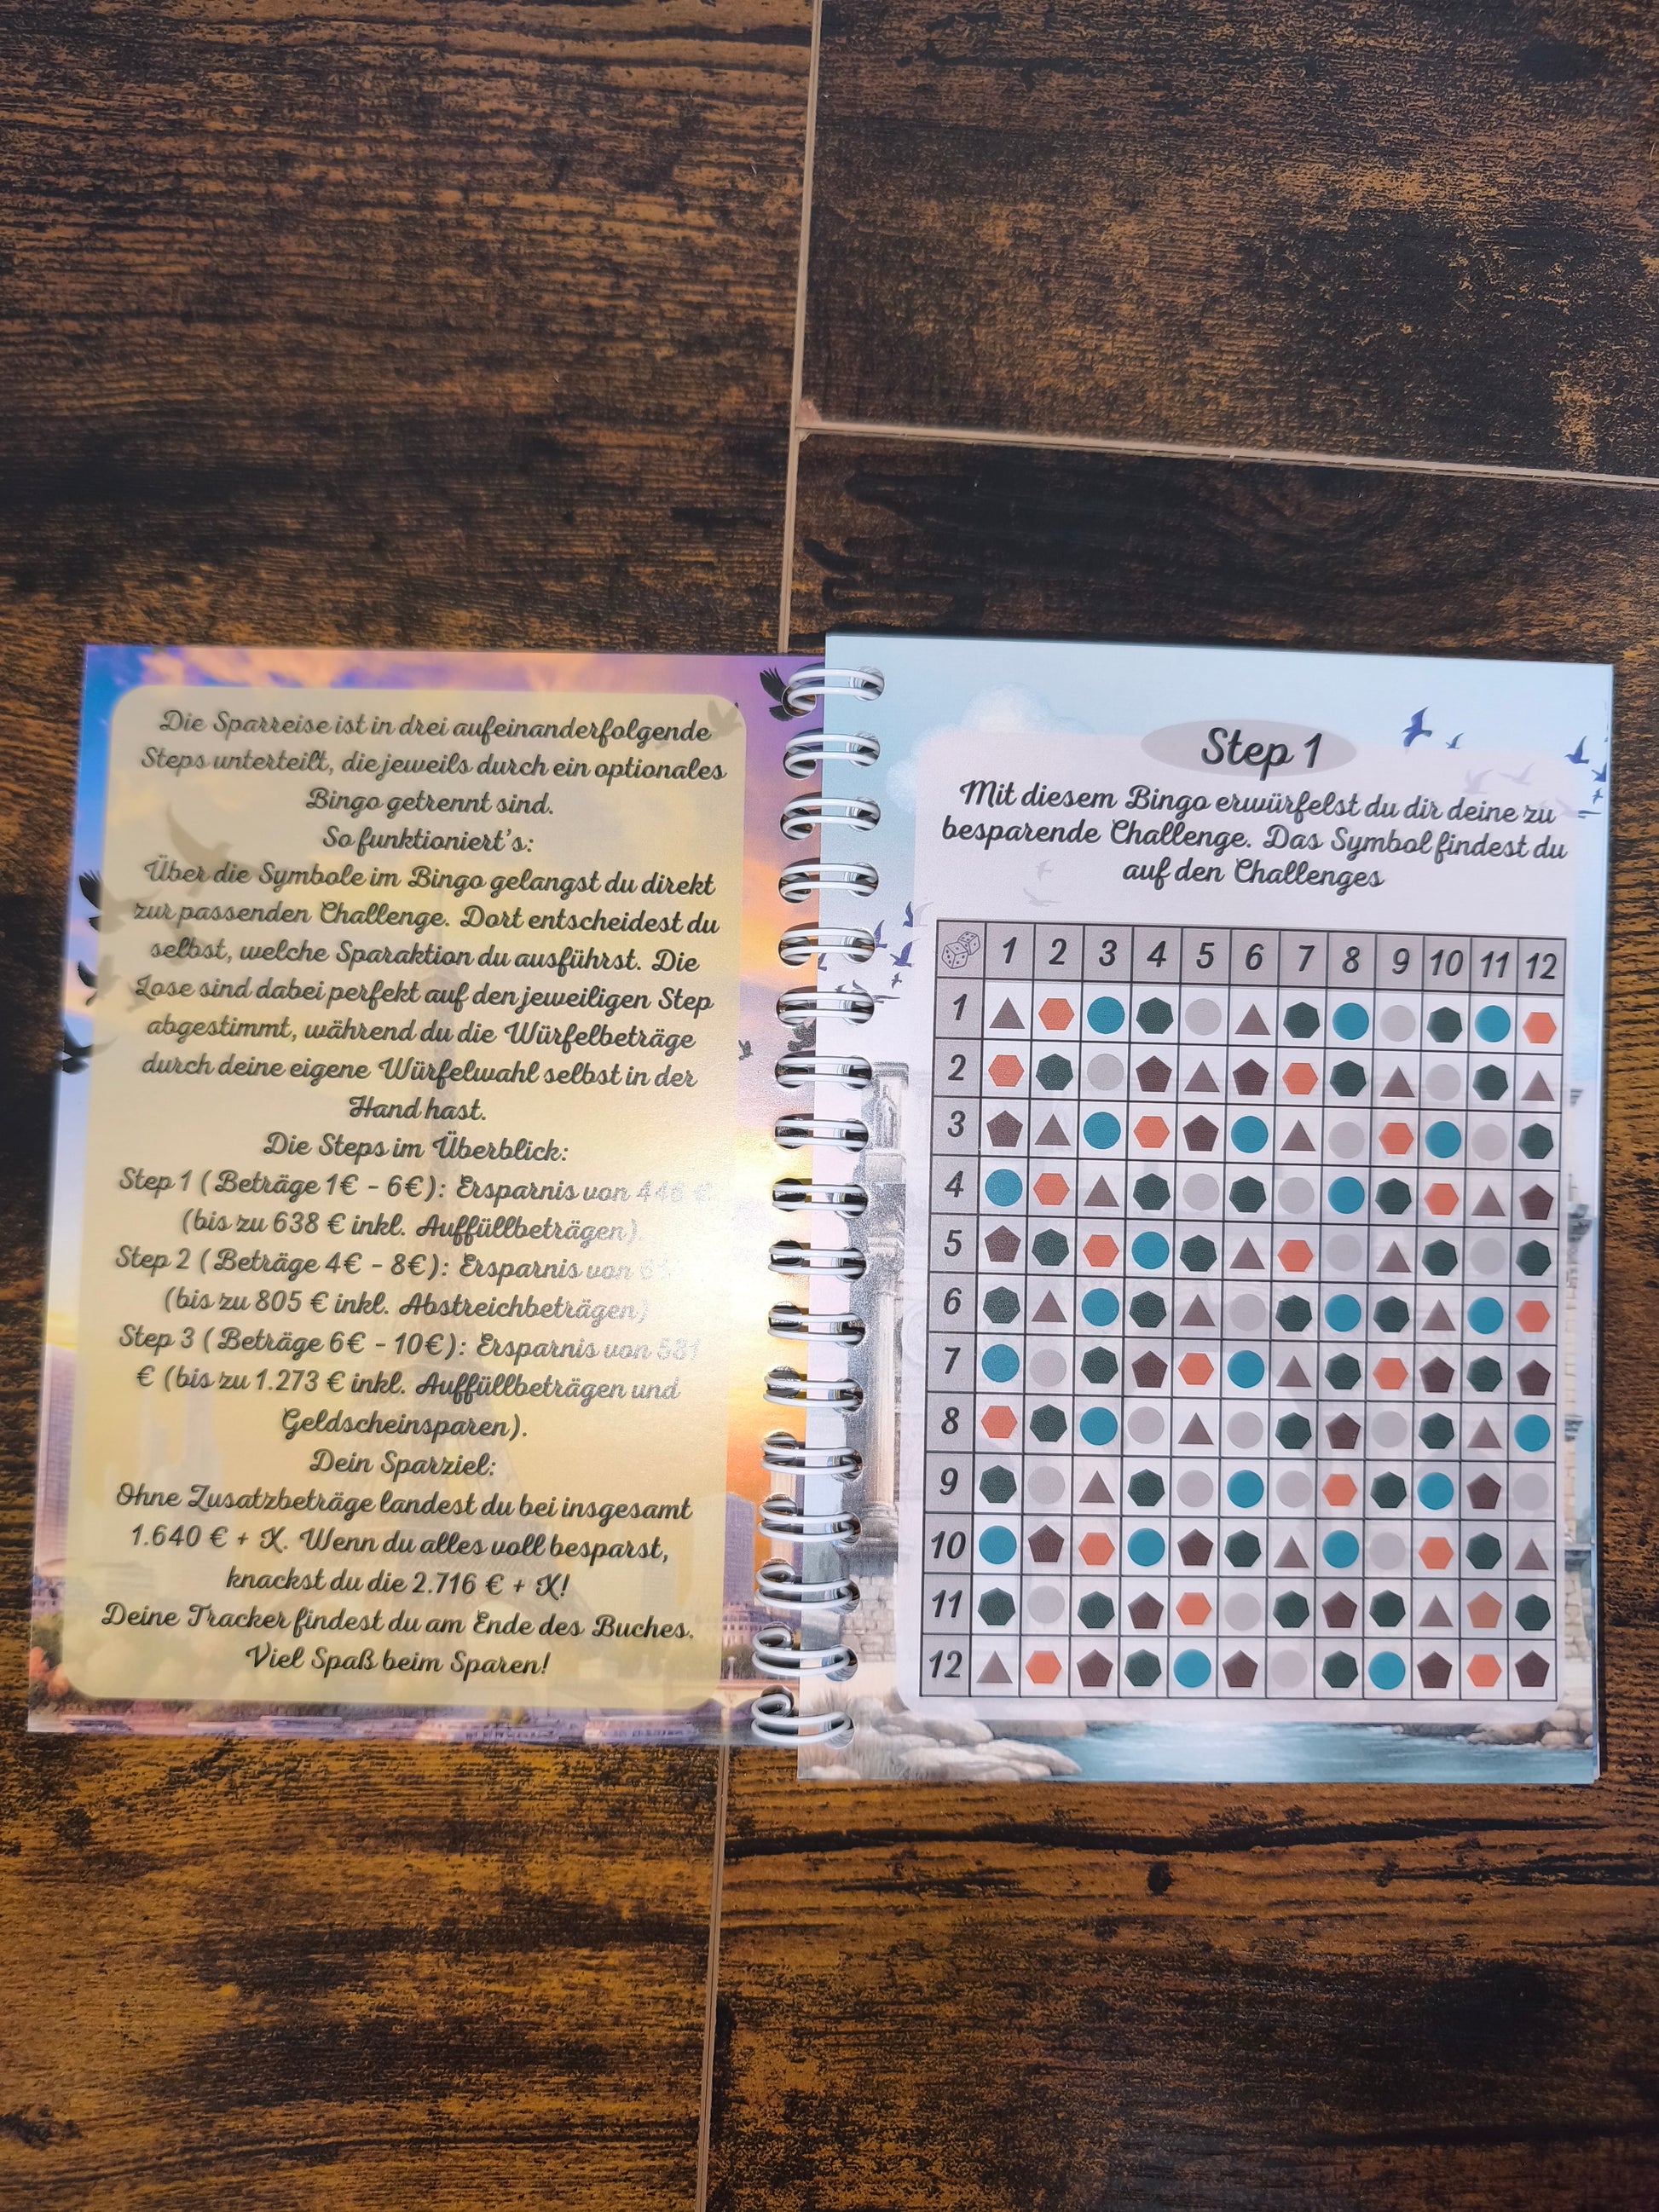 Die Sparreise ist in drei aufeinanderfolgende
Steps unterteilt, die jeweils durch ein optionales
Bingo getrennt sind.
So funktioniert's:
Über die Symbole im Bingo gelangst du direkt
zur passenden Challenge. Dort entscheidest du
selbst, welche Sparaktion du ausführst. Die
Lose sind dabei perfekt auf den jeweiligen Step
abgestimmt, während du die Würfelbeträge
durch deine eigene Würfelwahl selbst in der
Hand hast.
Die Steps im Überblick:
Step 1 ( Beträge 1€ - 6€): Ersparnis von 446 €
(bis zu 638 € inkl. Auffüllbeträgen)
Step 2 ( Beträge 4€ - 8€): Ersparnis von
(bis zu 805 € inkl. Abstreichbeträgen)
Step 3 ( Beträge 6€ - 10€): Ersparnis von 581
€ (bis zu 1.273 € inkl. Auffüllbeträgen und
Geldscheinsparen).
Dein Sparziel:
Ohne Zusatzbeträge landest du bei insgesamt
1.640 € + X. Wenn du alles voll besparst,
knackst du die 2.716 € + X!
Deine Tracker findest du am Ende des Buches.
Viel Spaß beim Sparen!
Step 1
Mit diesem Bingo erwürfelst du dir deine zu
besparende Challenge. Das Symbol findest du
auf den Challenges
1 2 3 4 5 6 7 8 9 10 11 12
1
2
3
4
5
6
7
8
9
10
11
12